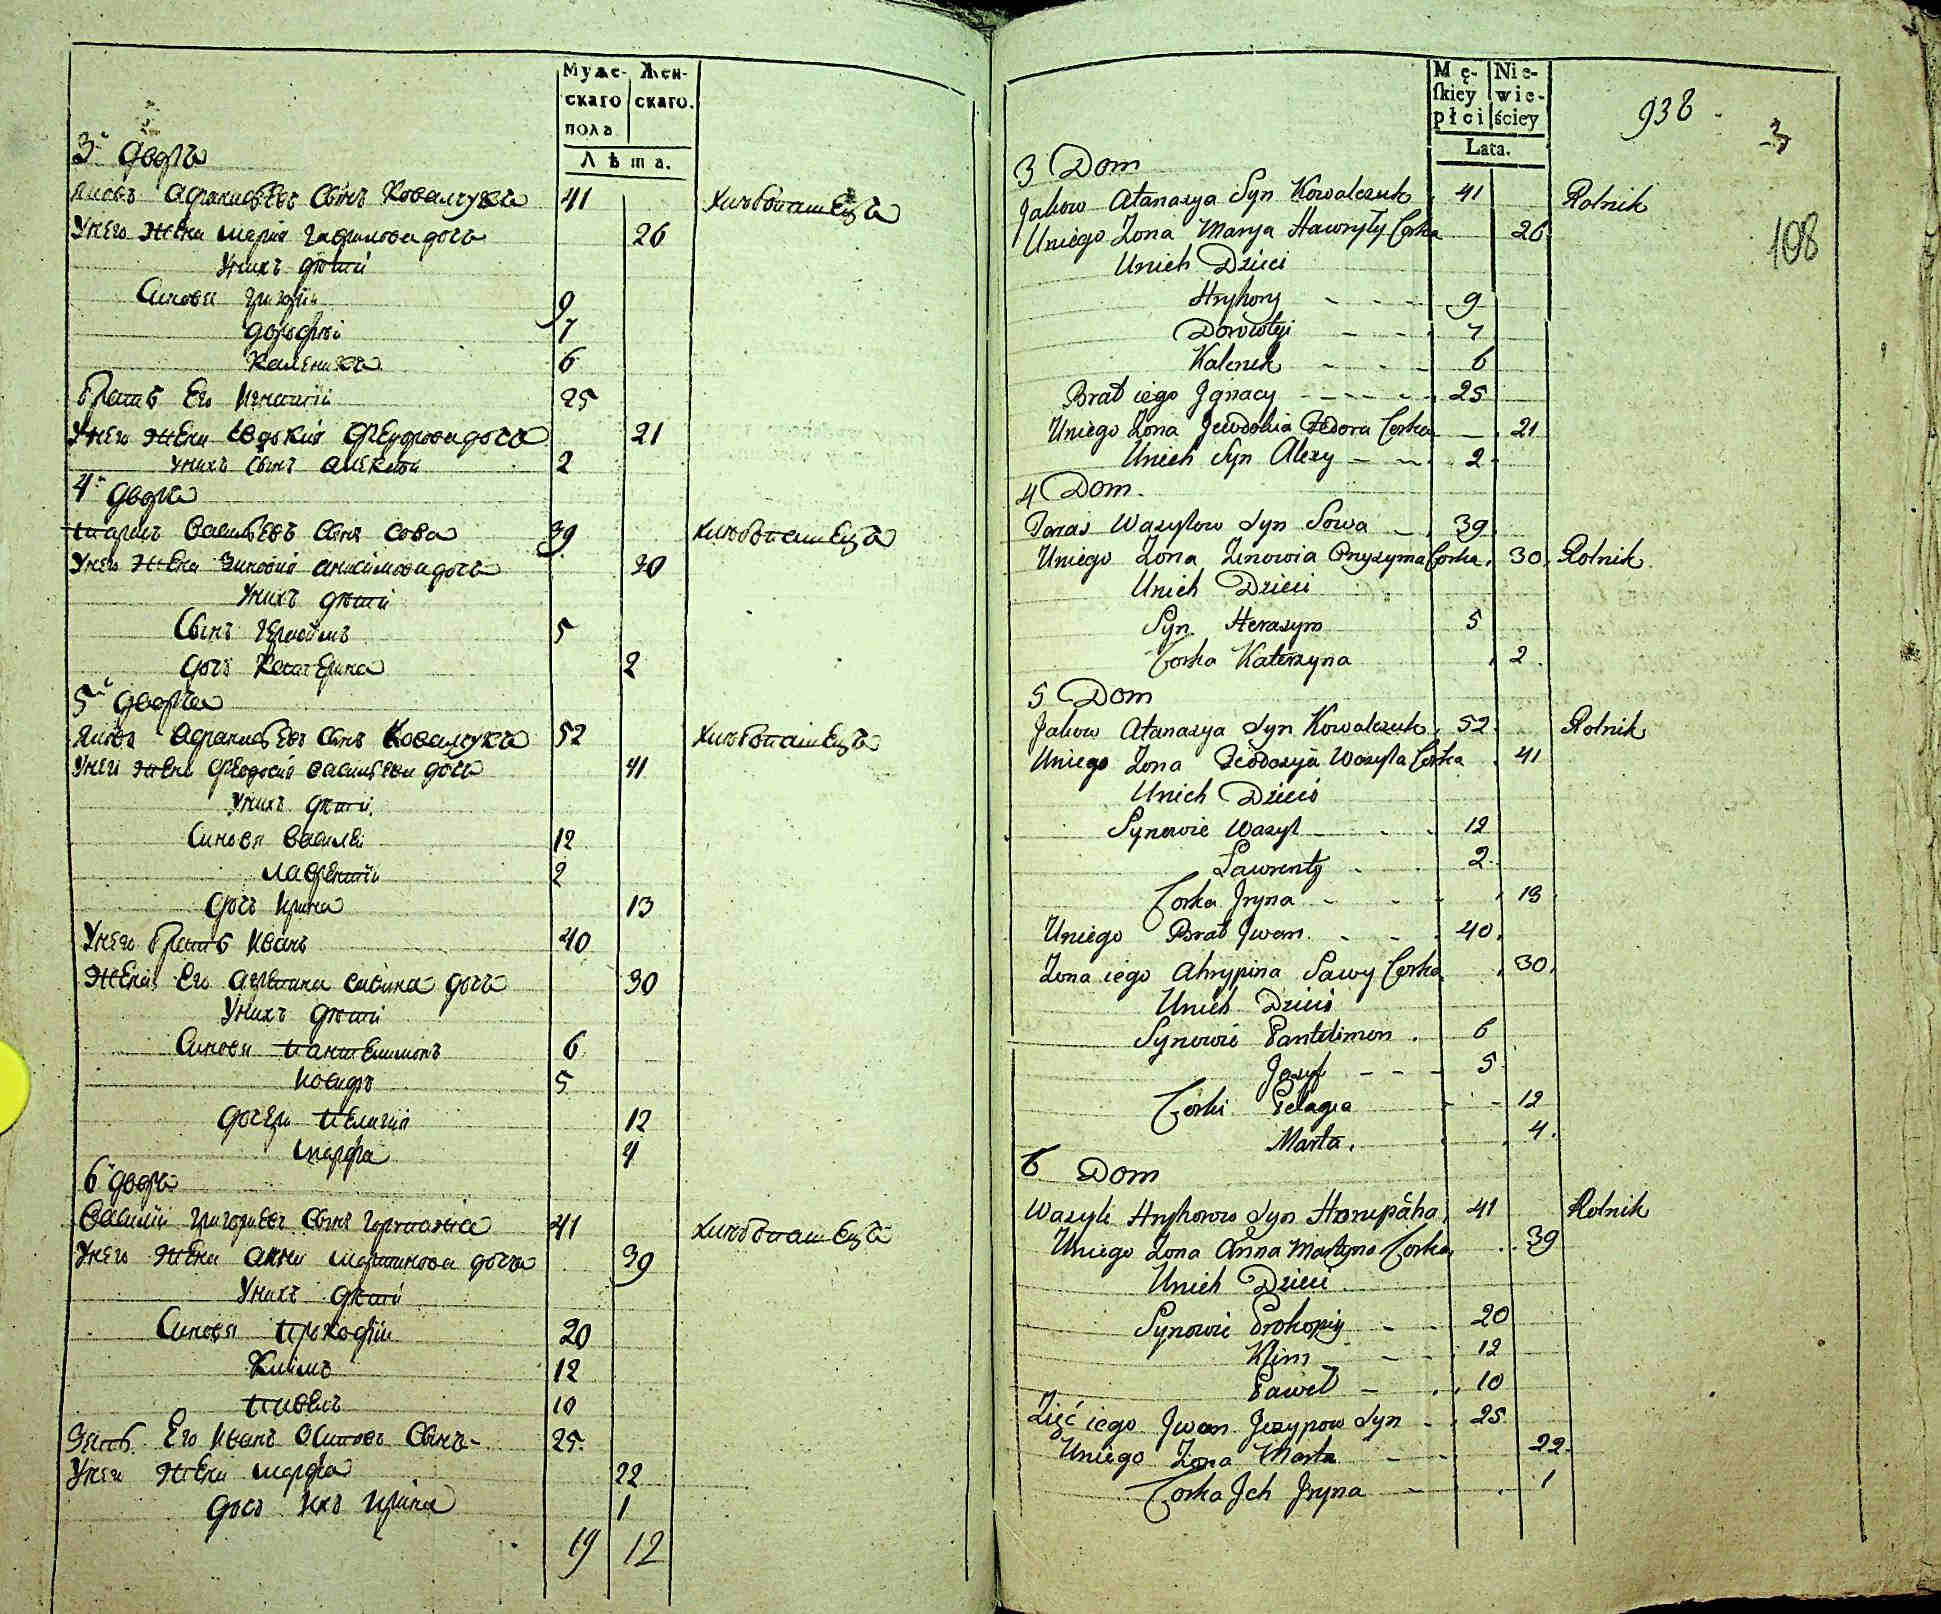 Муже-
скаго
пола
Жен-
скаго.
Лѣта.
3й дворъ
Яковъ Афанасьевъ сынъ Ковалчукъ 41 хлѣбопашецъ
У него жена Марія Гаврилова дочь 26
У нихъ дѣти
Синовя Григорій 9
Дорофей 7
Каленикъ 6
братъ Его Игнатій 25
У него жена Евдокия Федорова дочь 21
У нихъ сынъ Алексей 2
4й дворъ
Тарасъ Васильевъ сынъ Сова 39 хлѣбопашецъ
У него жена Зиновия Анисимова дочь 30
У нихъ дѣти
Сынъ Герасимъ 5
дочъ Катерина 2
5й дворъ
Яковъ Афанасьевъ сынъ Ковалчукъ 52 хлѣбопашецъ
У него жена Феодосия Васильева дочь 41
У нихъ дѣти
Синовя Василей 12
Лаврентій 2
дочъ Ирина 13
У него братъ Иванъ 40
Жена Его Агрепина Савина дочь 30
У нихъ дѣти
Синовя Пантелимонъ 6
Иосифъ 5
дочери Пелагия 12
Марфа 4
6й дворъ
Василій Григориевъ сынъ 41 хлѣбопашецъ
У него жена Анна Мартинова дочь 39
У нихъ дѣти
Синовя Прокофій 20
Климъ 12
Павелъ 10
Зять Его Иванъ Осиповъ Сынъ 25
У него жена Марфа 22
дочь Ихъ Ирина 1
19 12
Mę-
ſkiey
płci
Nie-
wie-
ściey
Lata.
938
3
108
3 Dom
Jakow Atanazya Syn Kowalczuk 41 Rolnik
Uniego Zona Marya Hawryły Corka 26
Unich Dzieci
Hryhory 9
Dorowtyi 7
Kalenik 6
Brat iego Jgnacy 25
Uniego Zona Jewdokia Fedora Corka 21
Unich Syn Alexy 2
4 Dom.
Taras Wasylow Syn Sowa 39
Uniego Zona Zenowia Onyzyma Corka 30 Rolnik
Unich Dzieci
Syn Herasym 5
Corka Katerzyna 2
5 Dom
Jakow Atanazya Syn Kowalczuk 52 Rolnik
Uniego Zona Feodozya Wasyla Corka 41
Unich Dzieci
Synowie Wasyl 12
Lawrenty 2
Corka Jryna 13
Uniego Brat Jwan 40
Zona iego Ahrypina Sawy Corka 30
Unich Dzieci
Synowie Pantelimon 6
Jozyf 5
Corki Pelagia 12
Marta 4
6 Dom
Wasyli Hryhorow Syn 41 Rolnik
Uniego Zona Anna Martyna Corka 39
Unich Dzieci
Synowie Prokopiy 20
Klim 12
Paweł 10
Zięć iego Jwan Jezypow Syn 25
Uniego Zona Marta 22
Corka Jch Jryna 1